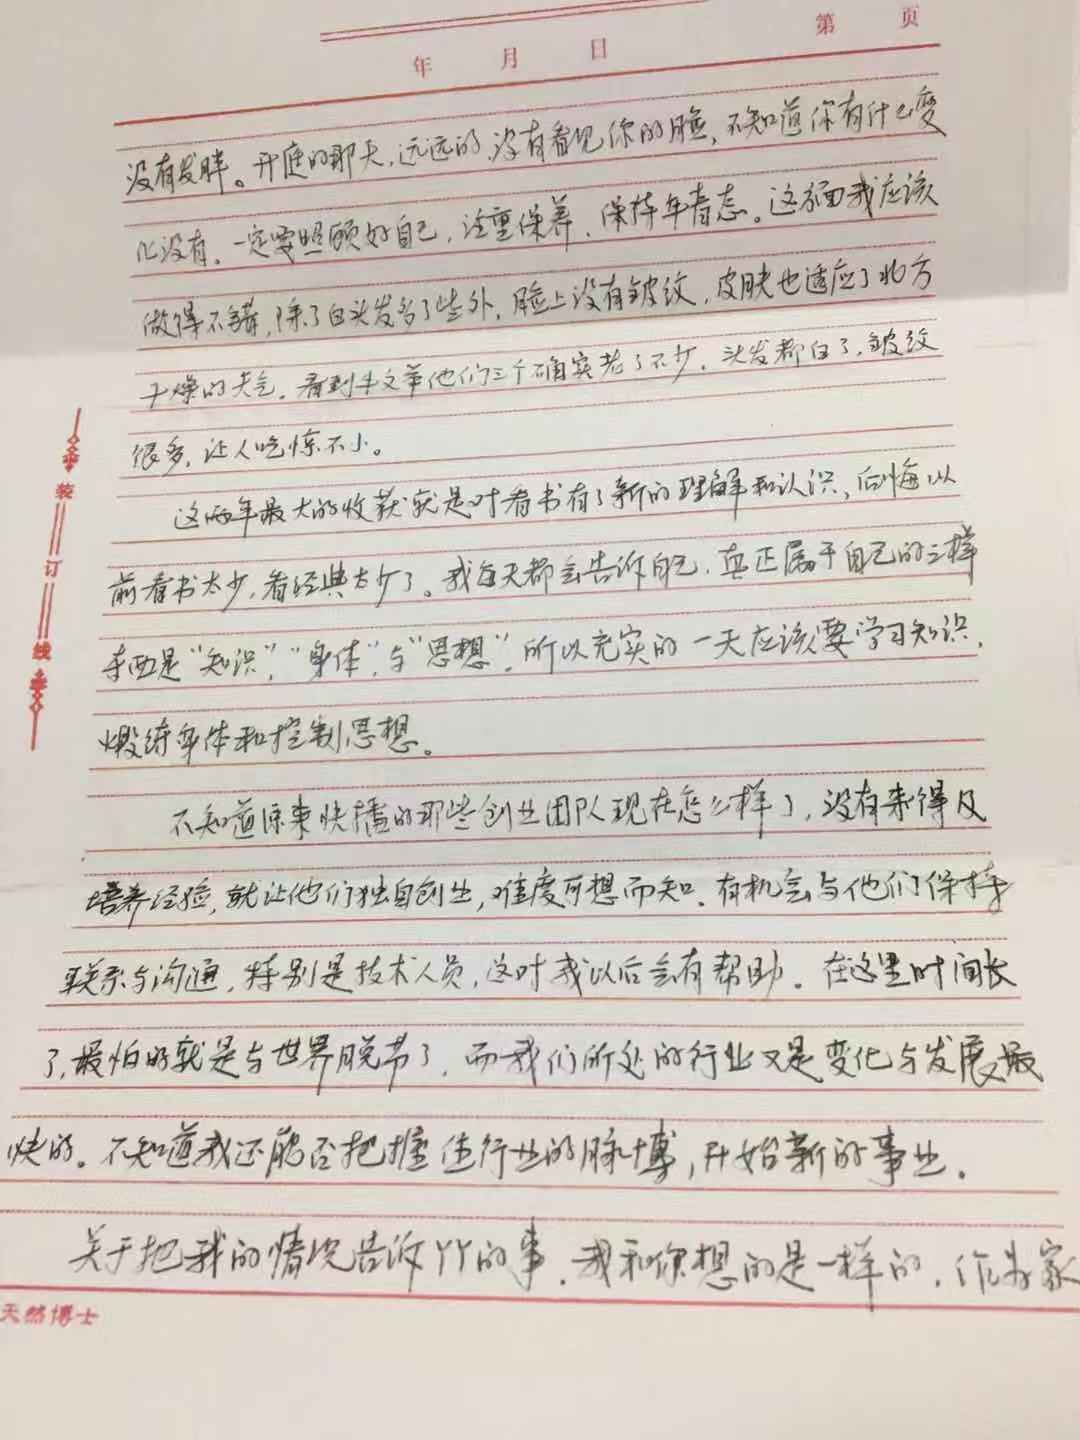 第 页
年 月 日
没有发胖。开庭的那天,远远的,没有看见你的脸,不知道你有什么变
化没有。一定要照顾好自己,注重保养,保持年青态。这方面我应该
做得不错,除了白头发多了些外,脸上没有皱纹,皮肤也适应了北方
干燥的天气。看到牛文举他们三个确实老了不少,头发都白了,皱纹
很多,让人吃惊不小。
这两年最大的收获就是对看书有了新的理解和认识,后悔以
前看书太少,看经典太少了。我每天都会告诉自己,真正属于自己的三样
东西是“知识”,“身体”,与“思想”,所以充实的一天应该要学习知识,
煅练身体和控制思想。
不知道原来快播的那些创业团队现在怎么样了,没有来得及
培养经验,就让他们独自创业,难度可想而知。有机会与他们保持
联系与沟通,特别是技术人员,这对我以后会有帮助。在这里时间长
了,最怕的就是与世界脱节了,而我们所处的行业又是变化与发展最
快的。不知道我还能否把握住行业的脉博,开始新的事业。
关于把我的情况告诉丫丫的事,我和你想的是一样的,作为家
装订线
天然博士